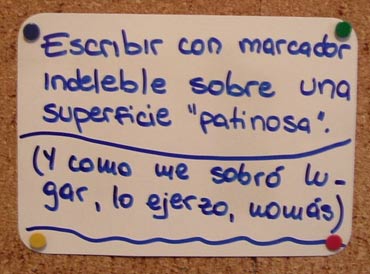 Escribir con marcador
indeleble sobre una
superficie "patinosa".
(Y como me sobró lu-
gar, lo ejerzo, nomás)